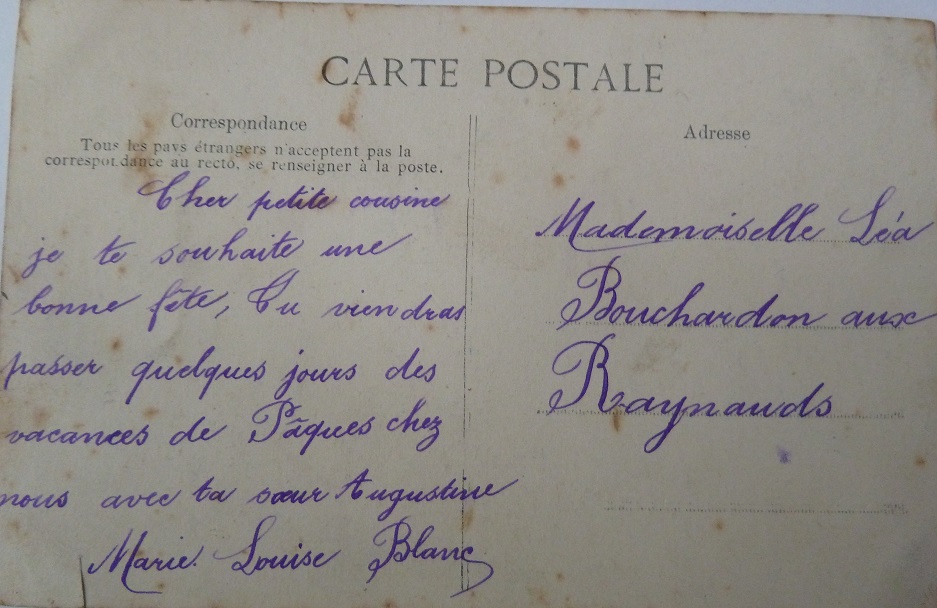 CARTE POSTALE
Correspondance
Tous les pays étrangers n'acceptent pas la
correspondance au recto, se renseigner à la poste.
Cher petite cousine
je te souhaite une
bonne fête, Tu viendras
passer quelques jours des
vacances de Pâques chez
nous avec ta sœur Augustine
Marie. Louise Blanc
Adresse
Mademoiselle Léa
Bouchardon aux
Raynauds